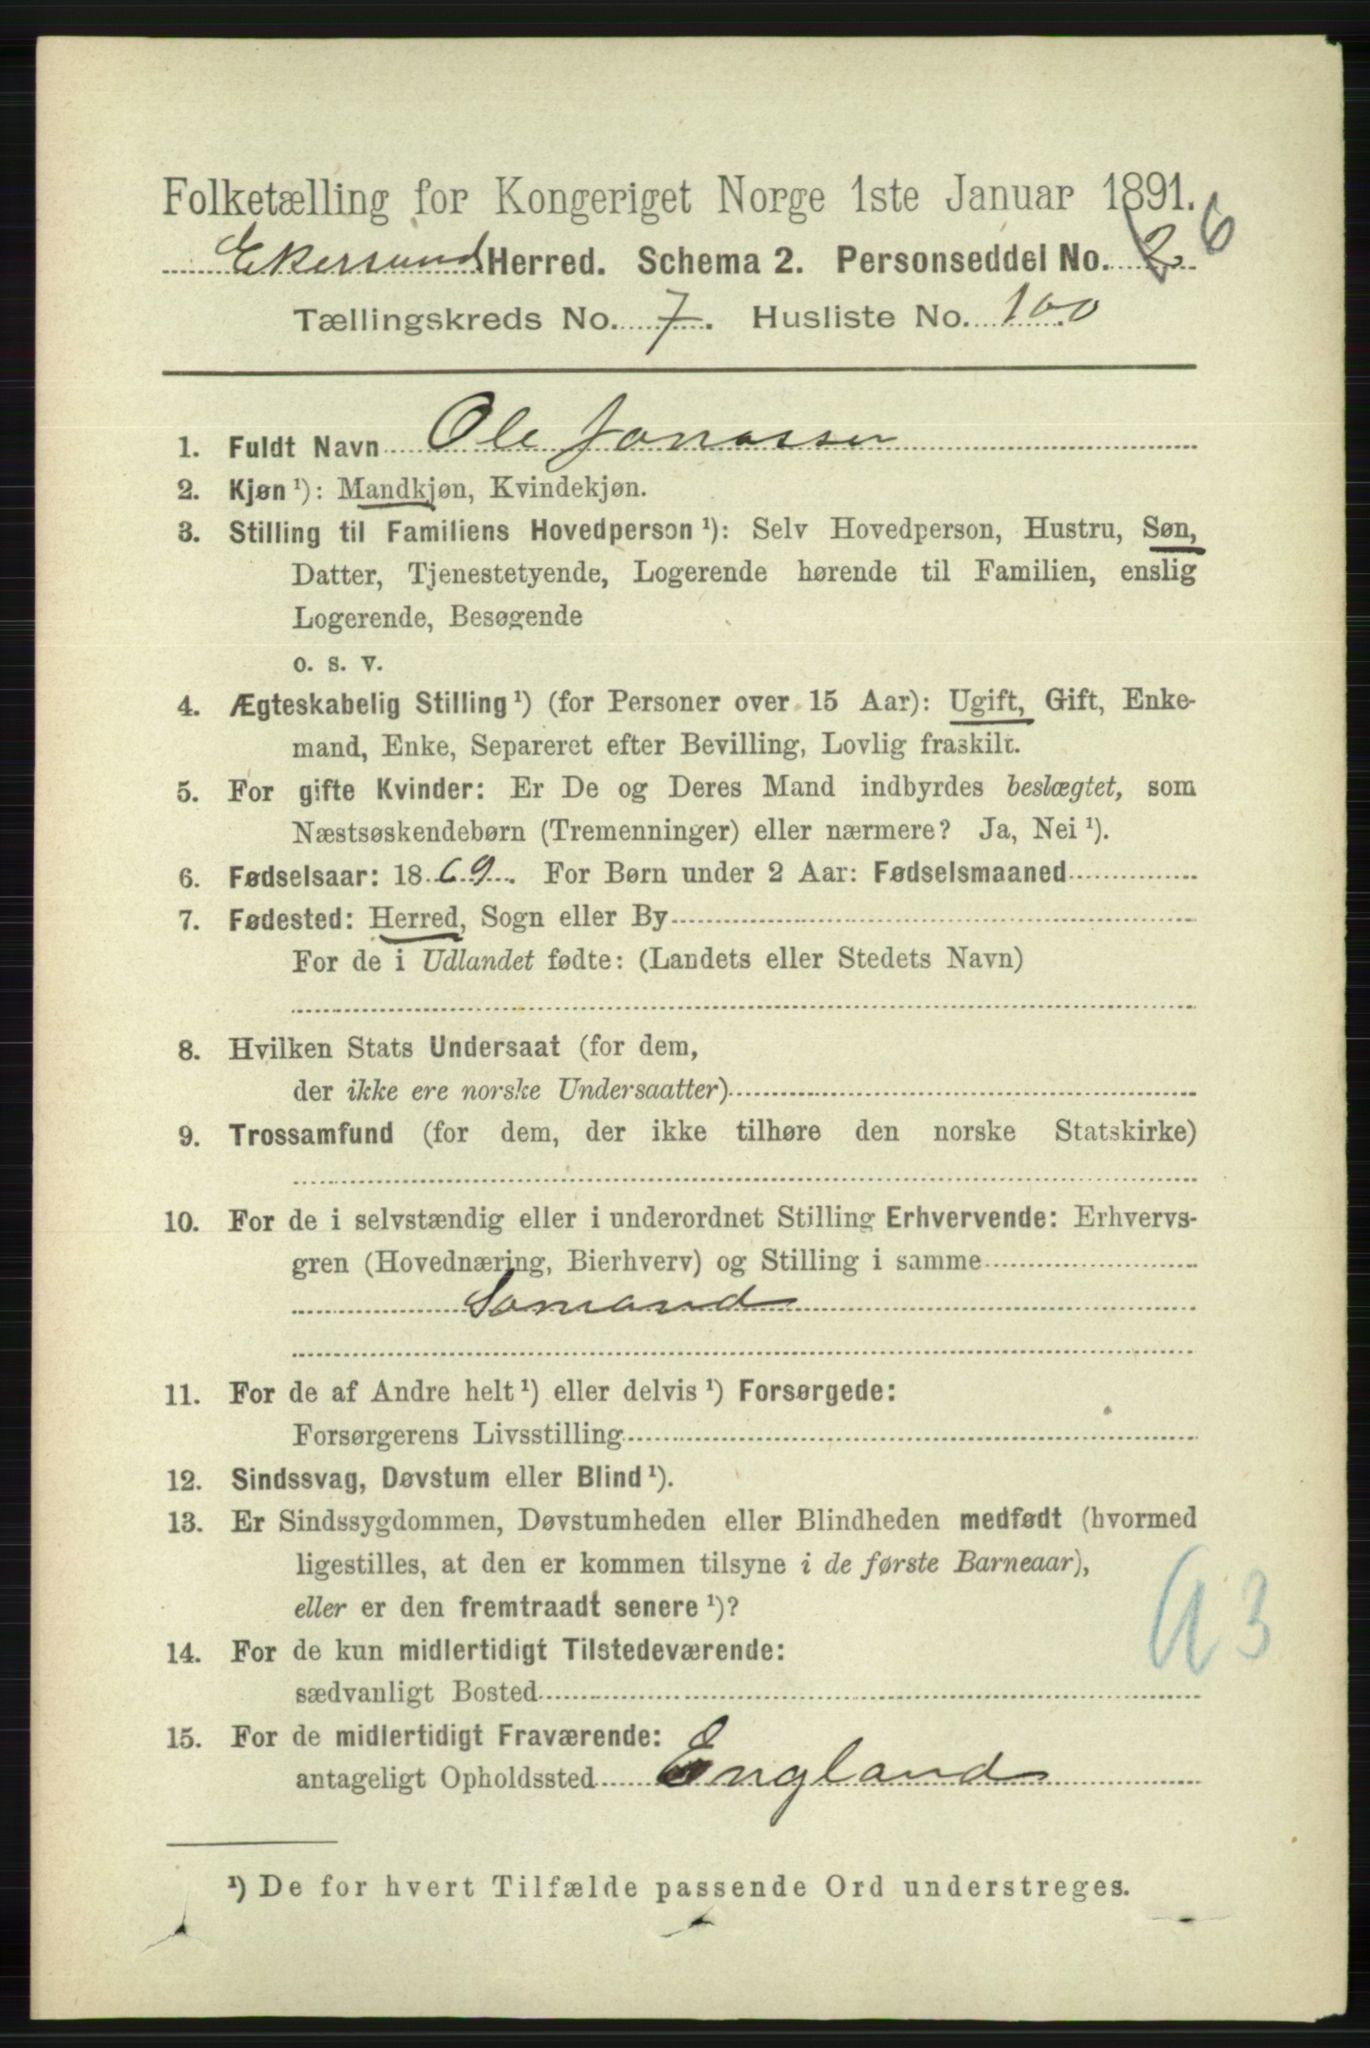 Folketælling for Kongeriget Norge 1ste Januar 1891.
Ekersund Herred. Schema 2. Personseddel No. 2 6
Tællingskreds No. 7. Husliste No. 100
1. Fuldt Navn Ole Jonassen
2. Kjøn ¹): Mandkjøn, Kvindekjøn.
3. Stilling til Familiens Hovedperson ¹): Selv Hovedperson, Hustru, Søn,
Datter, Tjenestetyende, Logerende hørende til Familien, enslig
Logerende, Besøgende
o. s. v.
4. Ægteskabelig Stilling ¹) (for Personer over 15 Aar): Ugift, Gift, Enke-
mand, Enke, Separeret efter Bevilling, Lovlig fraskilt.
5. For gifte Kvinder: Er De og Deres Mand indbyrdes beslægtet, som
Næstsøskendebørn (Tremenninger) eller nærmere? Ja, Nei ¹).
6. Fødselsaar: 1869. For Børn under 2 Aar: Fødselsmaaned
7. Fødested: Herred, Sogn eller By
For de i Udlandet fødte: (Landets eller Stedets Navn)
8. Hvilken Stats Undersaat (for dem,
der ikke ere norske Undersaatter)
9. Trossamfund (for dem, der ikke tilhøre den norske Statskirke)
10. For de i selvstændig eller i underordnet Stilling Erhvervende: Erhvervs-
gren (Hovednæring, Bierhverv) og Stilling i samme
Somand
11. For de af Andre helt ¹) eller delvis ¹) Forsørgede:
Forsørgerens Livsstilling
12. Sindssvag, Døvstum eller Blind ¹).
13. Er Sindssygdommen, Døvstumheden eller Blindheden medfødt (hvormed
ligestilles, at den er kommen tilsyne i de første Barneaar),
eller er den fremtraadt senere ¹)?
14. For de kun midlertidigt Tilstedeværende:
sædvanligt Bosted
15. For de midlertidigt Fraværende:
antageligt Opholdssted England
¹) De for hvert Tilfælde passende Ord understreges.